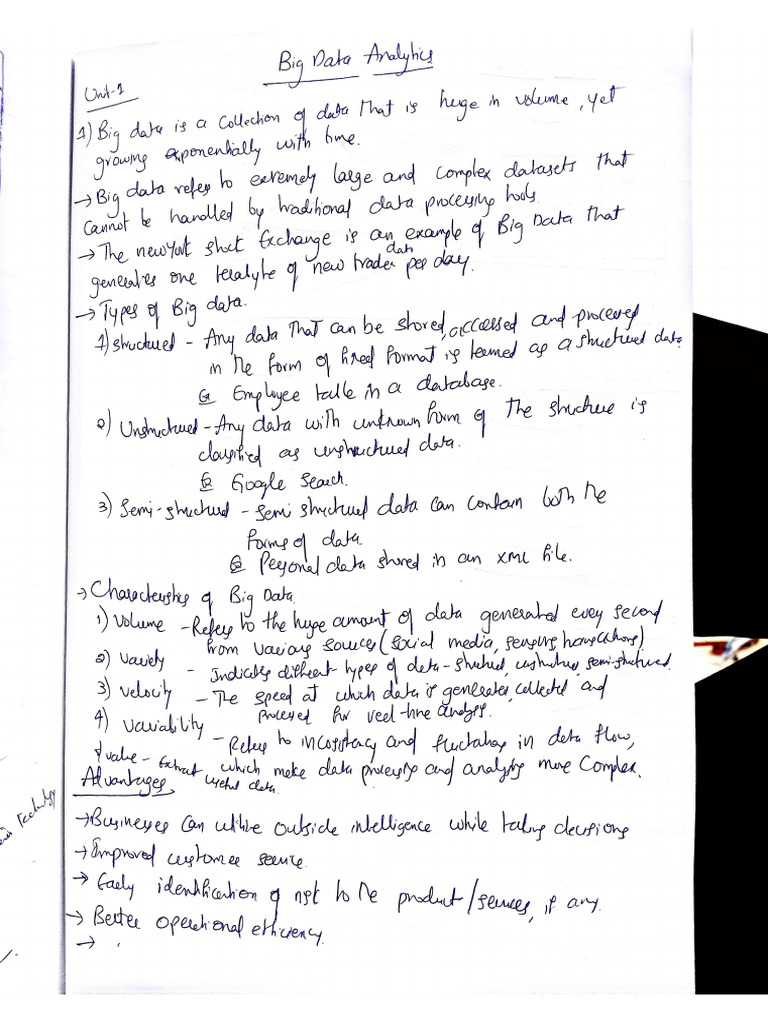 Big Data Analytics
Unit-1
1) Big data is a collection of data that is huge in volume, yet
growing exponentially with time.
→ Big data refers to extremely large and complex datasets that
cannot be handled by traditional data processing tools.
→ The newyork stock Exchange is an example of Big Data that
generates one terabyte of new trade data per day.
→ Types of Big data.
1) structured - Any data that can be stored, accessed and processed
in the form of fixed format is termed as a structured data
Eg Employee table in a database.
2) Unstructured - Any data with unknown form of the structure is
classified as unstructured data.
Eg Google Search.
3) Semi-structured - semi structured data can contain both the
forms of data.
Eg Personal data stored in an xml file.
→ Characteristics of Big Data.
1) Volume - Refers to the huge amount of data generated every second
from various sources (social media, sensors, transactions)
2) Variety - Indicates different types of data - structured, unstructured, semi-structured.
3) Velocity - The speed at which data is generated, collected and
processed for real-time analysis.
4) Variability - Refers to incosistency and fluctations in data flow,
which make data processing and analysing more complex.
value - Extract useful data.
Advantages
→ Businesses can utilize outside intelligence while taking decisions
→ Improved customer service.
→ Early identification of risk to the product/services, if any.
→ Better operational efficiency.
→